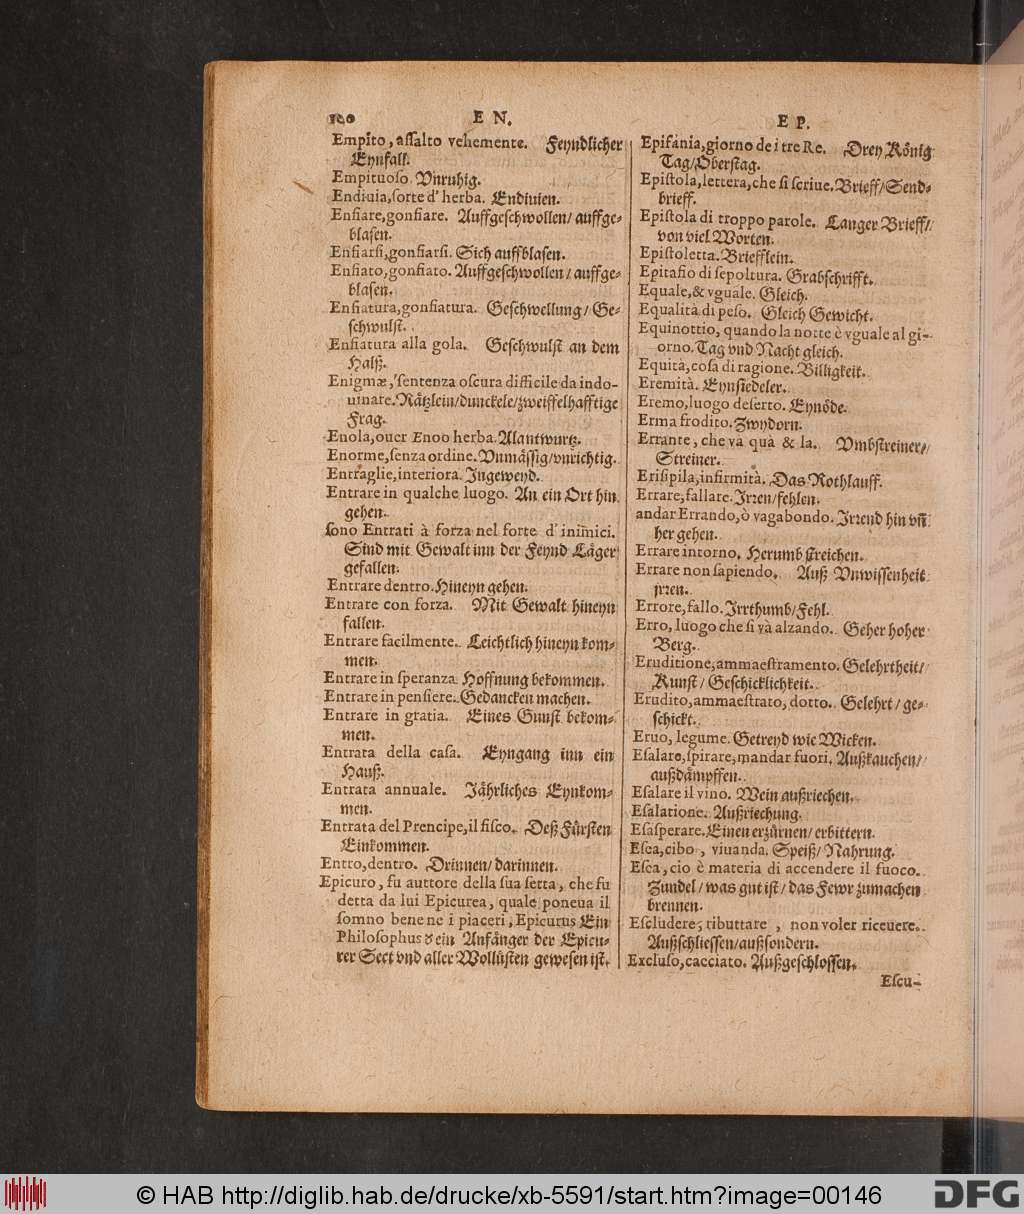 100 E N.
Empito, aſſalto vehemente. Feyndlicher
Eynfall.
Empituoſo Vnruhig.
Endiuia, ſorte d' herba. Endiuien.
Enfiare, gonfiare. Auffgeſchwollen/ auffge-
blaſen.
Enfiarſi, gonfiarſi. Sich auffblaſen.
Enfiato, gonfiato. Auffgeſchwollen/ auffge-
blaſen.
Enfiatura, gonfiatura. Geſchwellung/ Ge-
ſchwulſt.
Enfiatura alla gola. Geſchwulſt an dem
Halß.
Enigmæ, ſentenza oſcura difficile da indo-
uinare. Rätzlein/ dunckele/ zweiffelhafftige
Frag.
Enola, ouer Enoo herba. Alantwurtz.
Enorme, ſenza ordine. Vnmäſſig/ vnrichtig.
Entraglie, interiora. Ingeweyd.
Entrare in qualche luogo. An ein Ort hin
gehen.
ſono Entrati à forza nel forte d' inim̄ici.
Sind mit Gewalt inn der Feynd Läger
gefallen.
Entrare dentro. Hineyn gehen.
Entrare con forza. Mit Gewalt hineyn
fallen.
Entrare facilmente. Leichtlich hineyn kom-
men.
Entrare in ſperanza Hoffnung bekommen.
Entrare in penſiere. Gedancken machen.
Entrare in gratia. Eines Gunſt bekom-
men.
Entrata della caſa. Eyngang inn ein
Hauß.
Entrata annuale. Jährliches Eynkom-
men.
Entrata del Prencipe, il fiſco. Deß Fürſten
Einkommen.
Entro, dentro. Drinnen/ darinnen.
Epicuro, fu auttore della ſua ſetta, che fu
detta da lui Epicurea, quale poneua il
ſomno bene ne i piaceri, Epicurus Ein
Philoſophus der ein Anfänger der Epicu-
rer Sect vnd aller Wollüſten geweſen iſt.
E P.
Epifania, giorno de i tre Re. Drey König
Tag/ Oberſtag.
Epiſtola, lettera, che ſi ſcriue. Brieff/ Send-
brieff.
Epiſtola di troppo parole. Langer Brieff/
von viel Worten.
Epiſtoletta. Briefflein.
Epitafio di ſepoltura. Grabſchrifft.
Equale, & vguale. Gleich.
Equalità di peſo. Gleich Gewicht.
Equinottio, quando la notte è vguale al gi-
orno. Tag vnd Nacht gleich.
Equità, coſa di ragione. Billigkeit.
Eremità. Eynſiedeler.
Eremo, luogo deſerto. Eynöde.
Erma frodito. Zwydorn.
Errante, che va quà & la. Vmbſtreiner/
Streiner.
Eriſipila, infirmità. Das Rothlauff.
Errare, fallare. Irren/ fehlen.
andar Errando, ò vagabondo. Irrend hin vñ
her gehen.
Errare intorno. Herumb ſtreichen.
Errare non ſapiendo. Auß Vnwiſſenheit
jrren.
Errore, fallo. Irrthumb/ Fehl.
Erro, luogo che ſi và alzando. Geher hoher
Berg.
Eruditione, ammaeſtramento. Gelehrtheit/
Kunſt/ Geſchicklichkeit.
Erudito, ammaeſtrato, dotto. Gelehrt/ ge-
ſchickt.
Eruo, legume. Getreyd wie Wicken.
Eſalare, ſpirare, mandar fuori. Außkauchen/
außdämpffen.
Eſalare il vino. Wein außriechen.
Eſalatione. Außriechung.
Eſaſperare. Einen erzürnen/ erbittern.
Eſca, cibo, viuanda. Speiß/ Nahrung.
Eſca, cio è materia di accendere il fuoco.
Zundel/ was gut iſt/ das Fewr zumachen
brennen.
Eſcludere, ributtare, non voler riceuere.
Außſchlieſſen/ außſondern.
Excluſo, cacciato. Außgeſchloſſen.
Eſcu-
© HAB http://diglib.hab.de/drucke/xb-5591/start.htm?image=00146
DFG